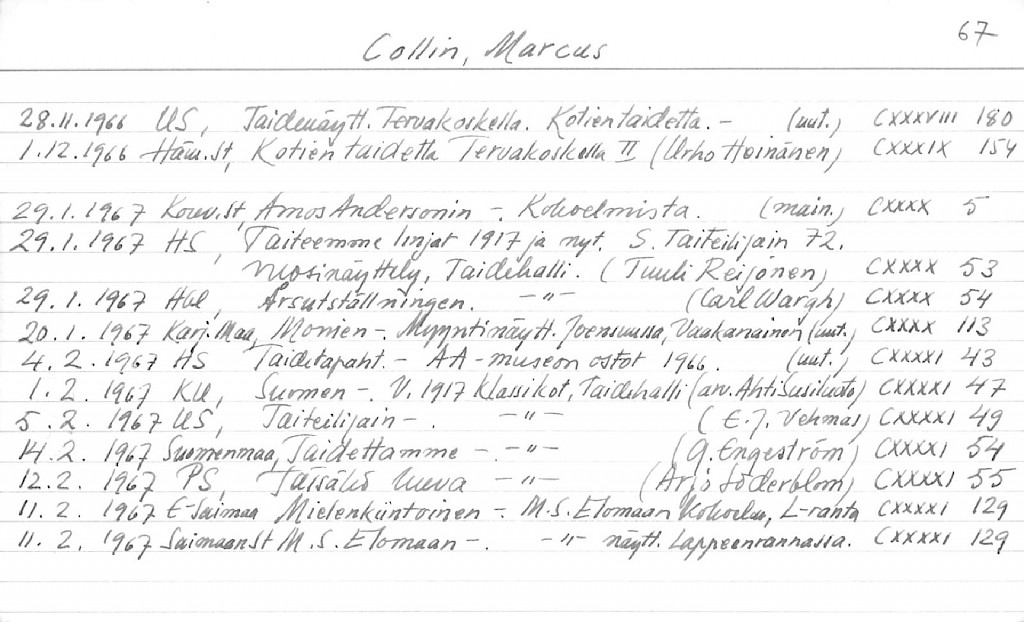 67
Collin, Marcus
28.11.1966 US, Taidenäytt. Tervakoskella. Kotien taidetta. - (uut.) CXXXVIII 180
1.12.1966 Häm.St, Kotien taidetta Tervakoskella II (Urho Heinänen) CXXXIX 154
29.1.1967 Kouv.St, Amos Andersonin -. Kokoelmista. (main.) CXXXX 5
29.1.1967 HS, Taiteemme linjat 1917 ja nyt. S. Taiteilijain 72.
vuosinäyttely, Taidehalli. (Tuuli Reijonen) CXXXX 53
29.1.1967 Hbl, Årsutställningen. -"- (Carl Wargh) CXXXX 54
20.1.1967 Karj.Maa, Monien -. Myyntinäytt. Joensuussa, Vaakanainen (uut.) CXXXX 113
4.2.1967 HS Taidetapaht. - AA-museon ostot 1966. (uut.) CXXXXI 43
1.2.1967 KU, Suomen -. V. 1917 klassikot, Taidehalli (arv. Ahti Susiluoto) CXXXXI 47
5.2.1967 US, Taiteilijain -. -"- (E.J. Vehmas) CXXXXI 49
14.2.1967 Suomenmaa, Taidettamme -. -"- (G. Engeström) CXXXXI 54
12.2.1967 PS, -"- (Arjo Söderblom) CXXXXI 55
11.2.1967 E-Saimaa Mielenkiintoinen -. M.S. Elomaan kokoelm, L-ranta CXXXXI 129
11.2.1967 SaimaanSt M.S. Elomaan -. -"- näytt. Lappeenrannassa. CXXXXI 129